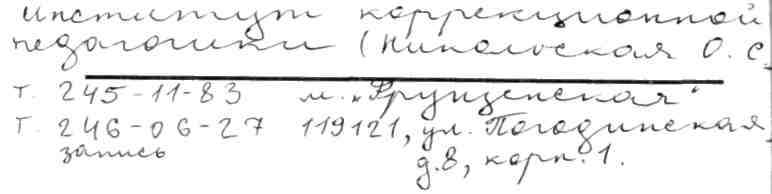 Институт коррекционной
педагогики (Никольская О. С.
т. 245-11-83 м. „Фрунзенская“
т. 246-06-27 119121, ул. Погодинская
запись д.8, корп. 1.